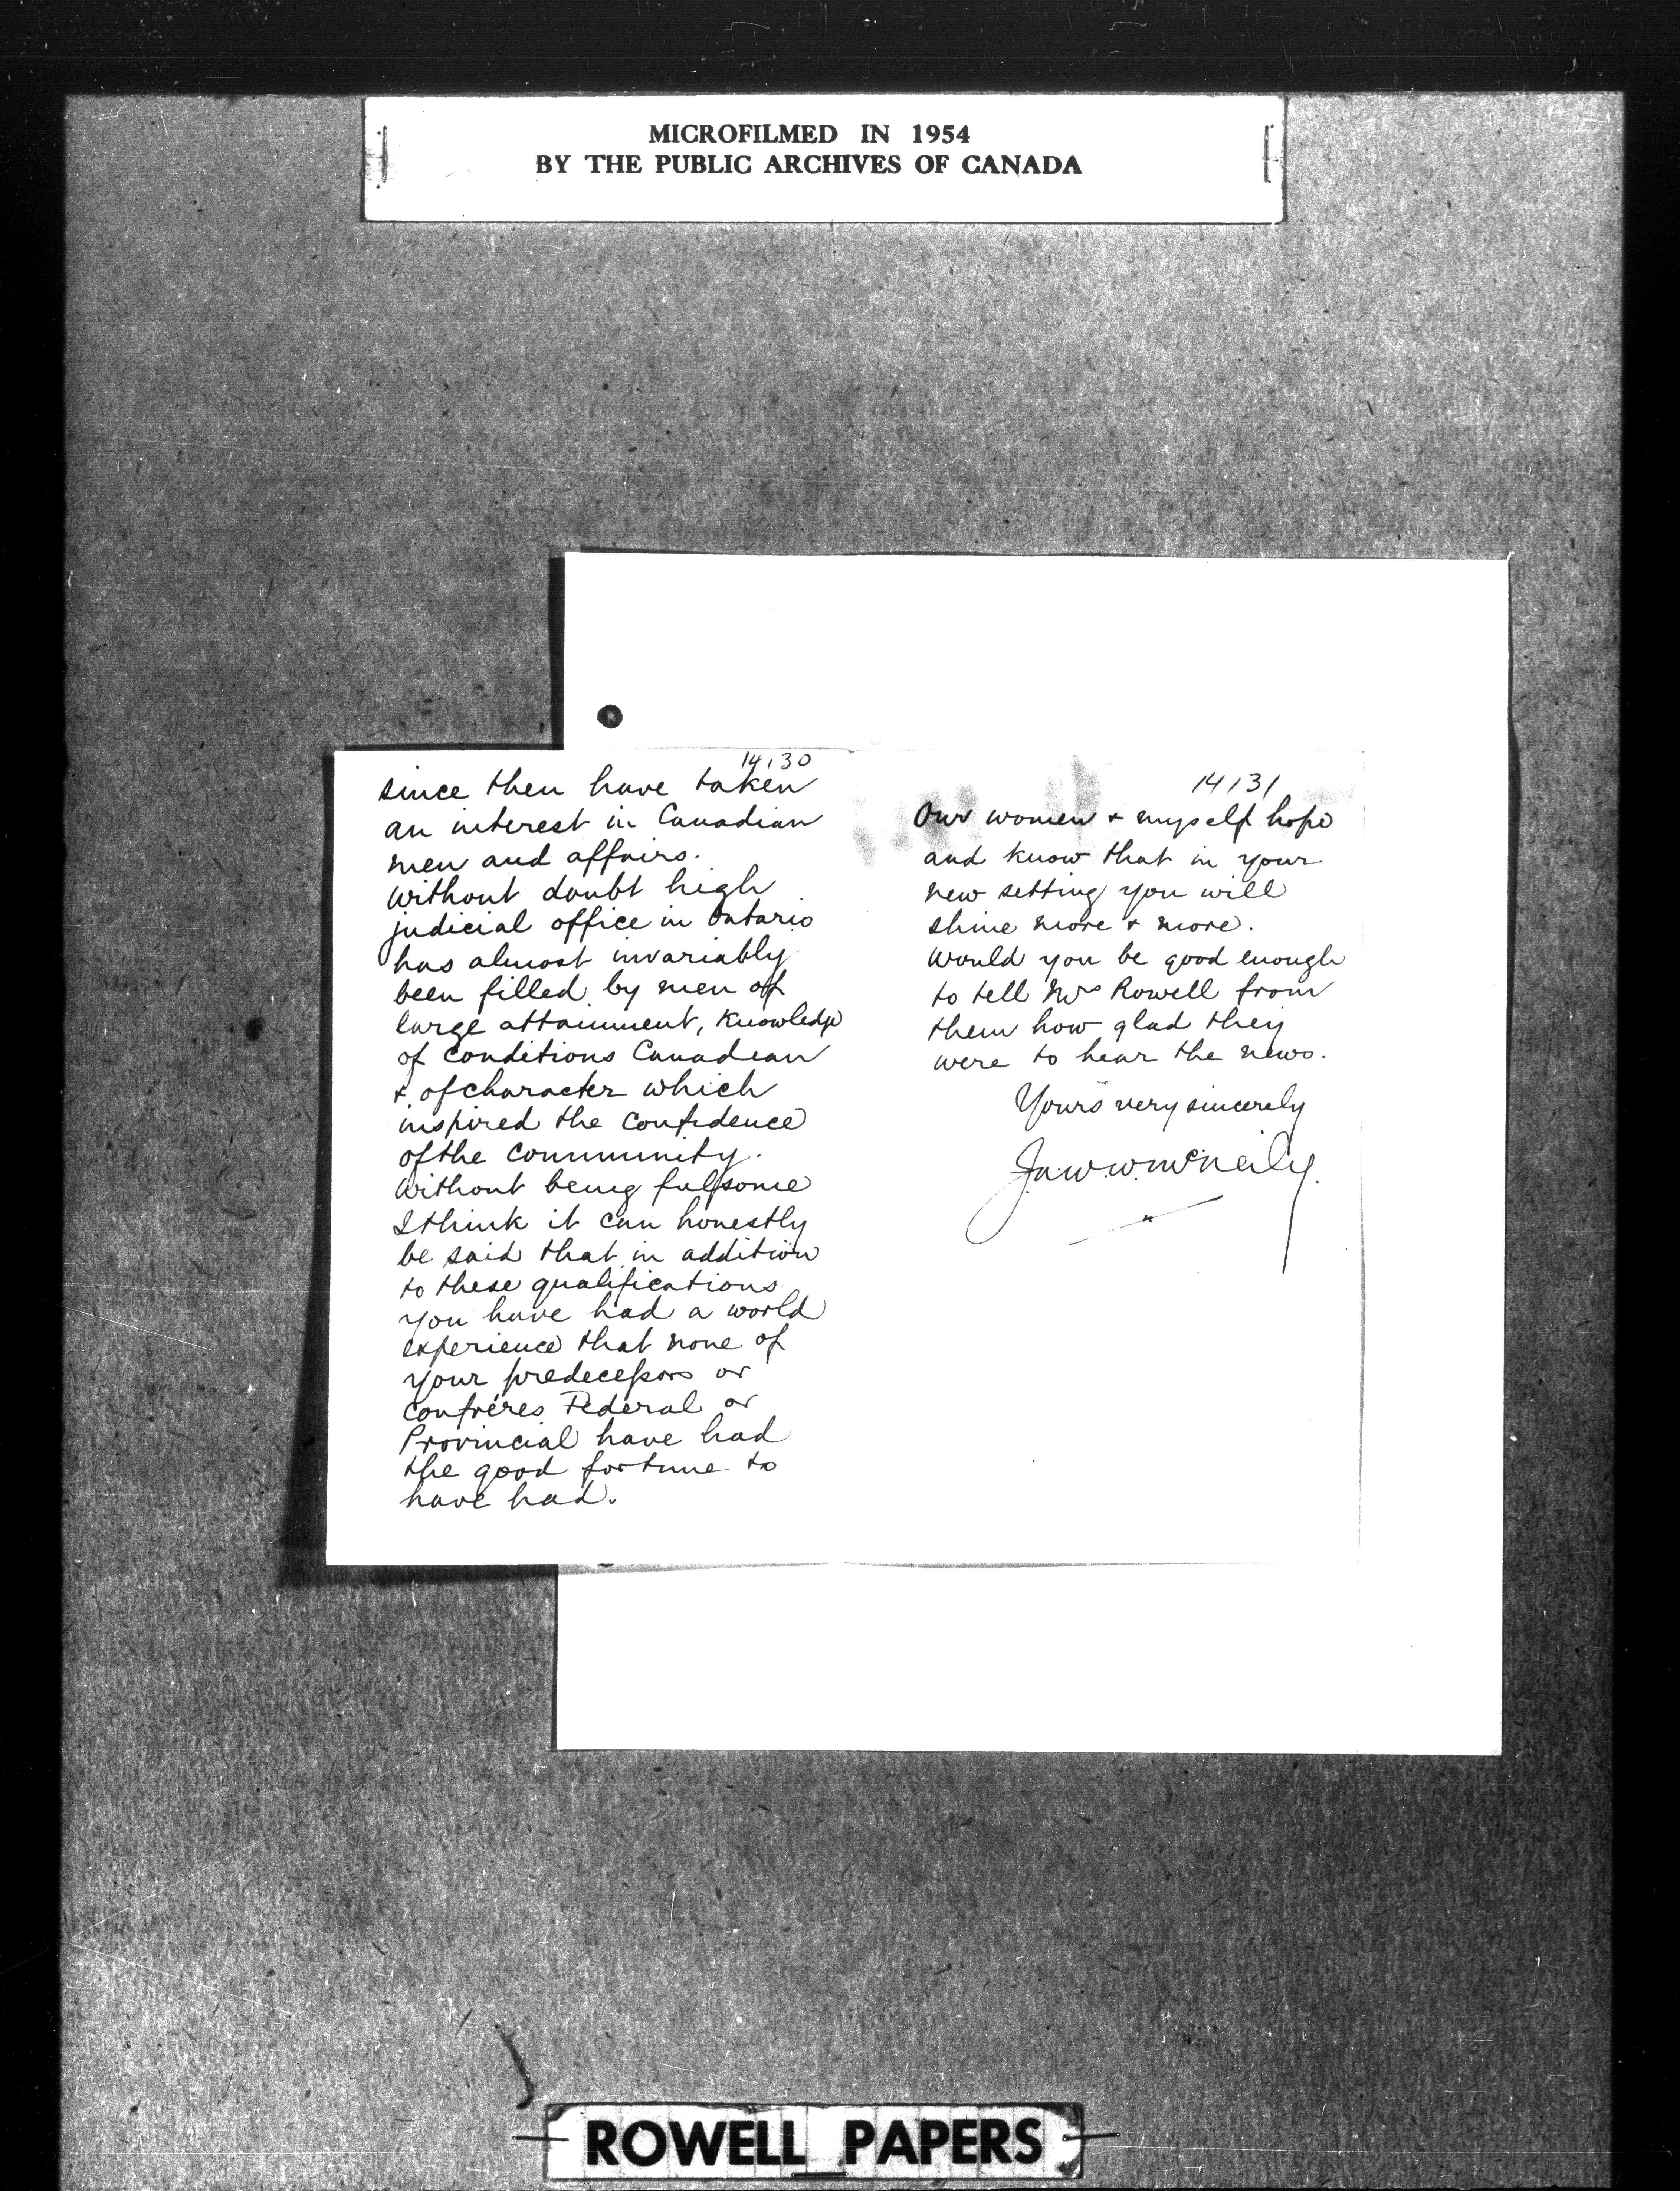 MICROFILMED IN 1954
BY THE PUBLIC ARCHIVES OF CANADA
14130
since then have taken
an interest in Canadian
men and affairs.
Without doubt high
judicial office in Ontario
has almost invariably
been filled by men of
large attainment, knowledge
of conditions Canadian
& of character which
inspired the confidence
of the community.
Without being fulsome
I think it can honestly
be said that in addition
to these qualifications
you have had a world
experience that none of
your predecessors or
confréres Federal or
Provincial have had
the good fortune to
have had.
14131
Our women & myself hope
and know that in your
new setting you will
shine more & more.
Would you be good enough
to tell Mrs Rowell from
them how glad they
were to hear the news.
Yours very sincerely
McNeily.
ROWELL PAPERS